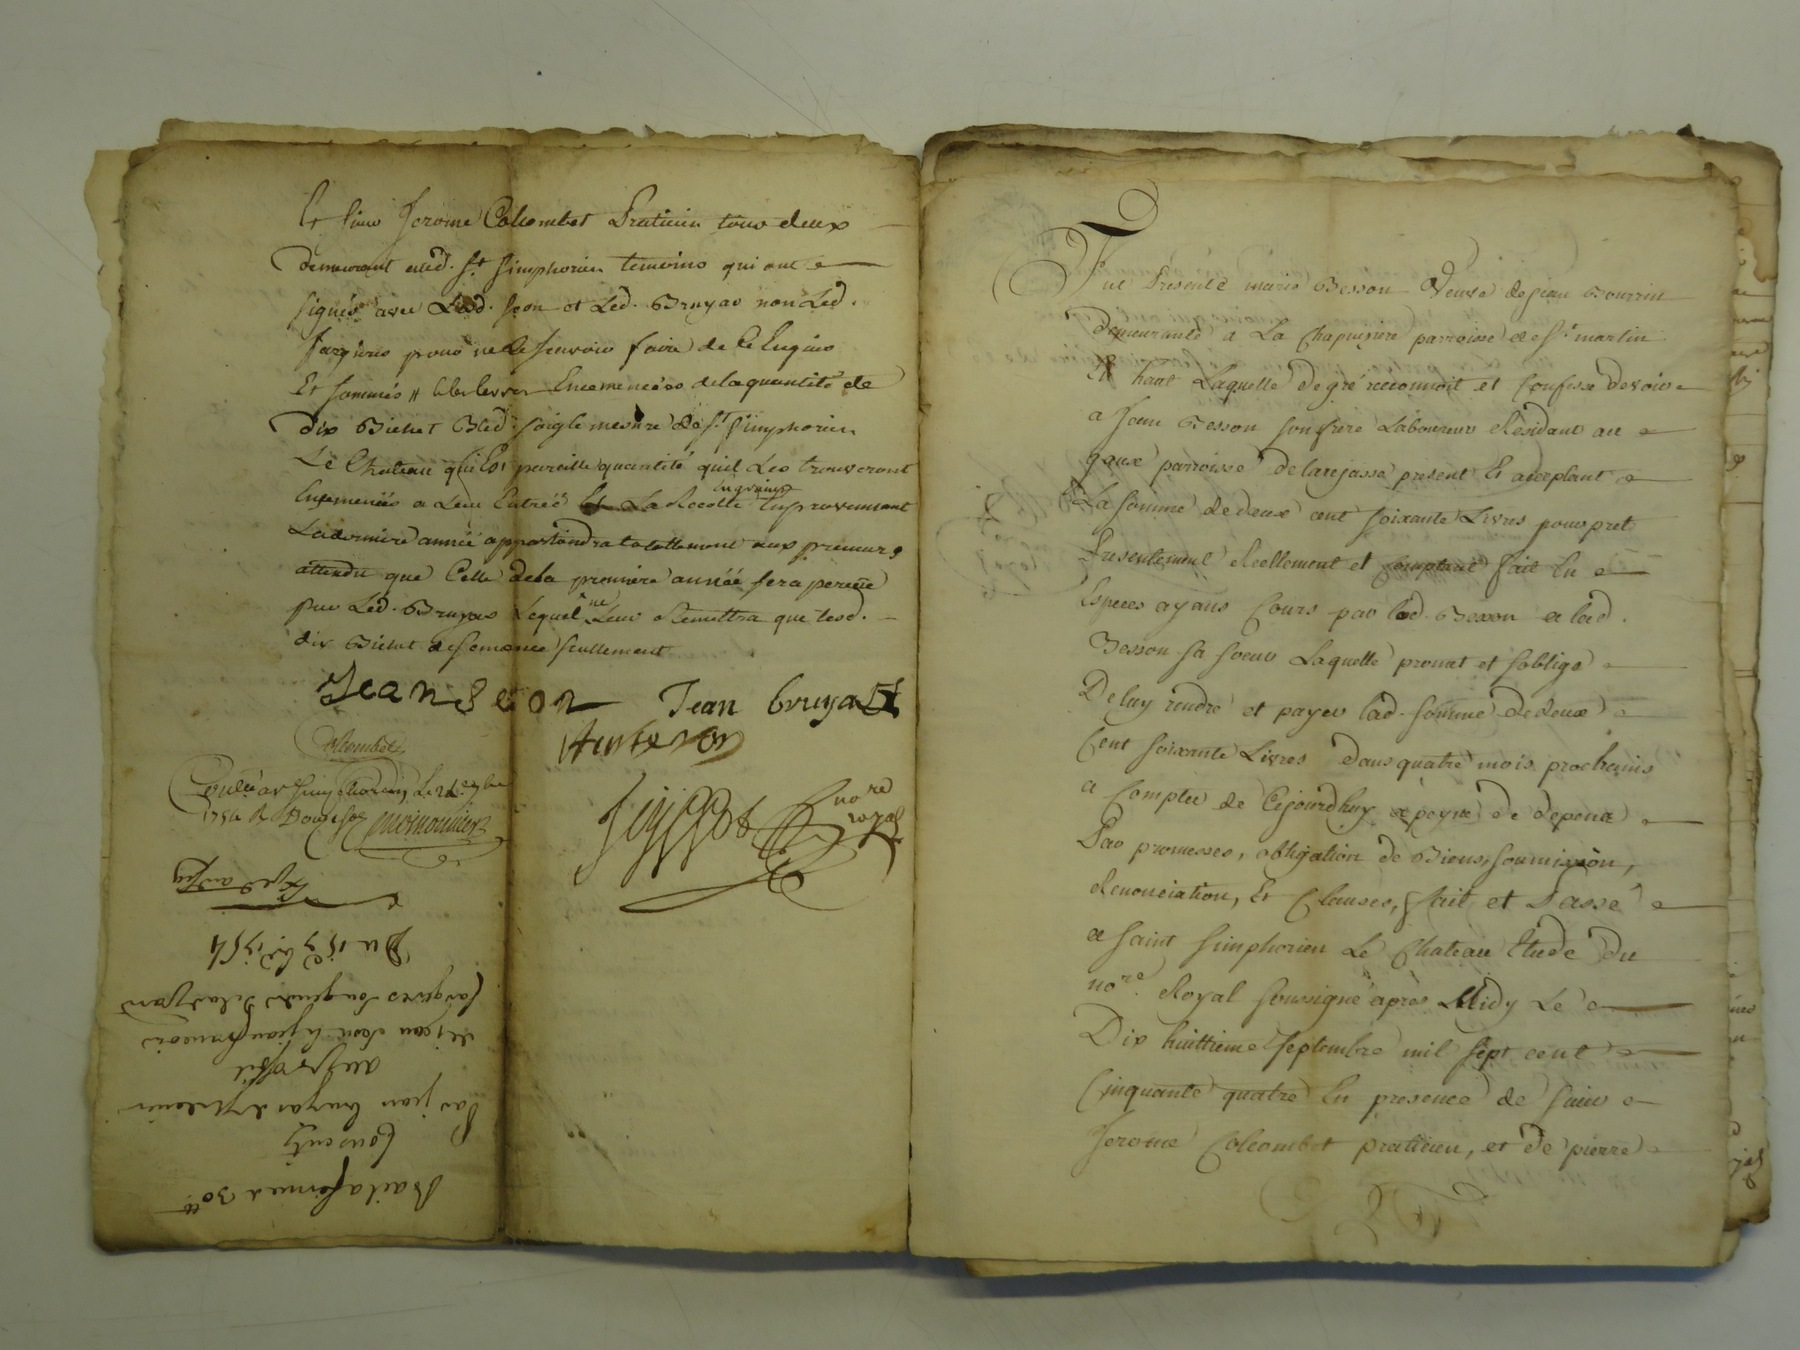 Et sieur Jerome Colcombet Praticien tous deux
demeurant aud. St. Simphorien temoins qui ont
signés avec Led. Jean et Led. Bruyas non Led.
fargeres pour ne le scavoir faire de ce Enquis
Et sommés Ensemencées de la quantité de
dix Bichet Bled soigle mesure de St. Simphorien
Le Chateau qui Est pareille quantité quil Les trouveront
Ensemencées a Leur Entrée La Recolte En grains En provennant
La derniere année appartiendra totallement aux preneurs
attendu que Celle de la premiere année sera percüe
par Led. Bruyas Lequel ne Leur Remettra que lesd.
dix Bichet de semence seullement
Jean Jean bruyas
Colcombet
nore
royal
Controlé a St Simphorien Le
1754 R Douze sols
Bail a ferme a 30tt
Consenty
Par jean bruyas
au proffit
de jean et jean francois
fargeres
Du 1754
Fut Presente marie Besson Veuve de jean Bourrin
demeurante a La Chapuisiere parroisse de St. martin
En haut Laquelle de gré reconnoit et Confesse devoir
a Jean Besson son frere Laboureur Residant au
parroisse de larajasse present Et acceptant
La somme de deux cent soixante Livres pour pret
Presentement Reellement et Comptant fait En
Especes ayans Cours par led. Besson a lad.
Besson sa soeur Laquelle promet et s'oblige
De luy rendre et payer lad. somme de deux
Cent soixante Livres dans quatre mois prochains
a Compter de Cejourdhuy a peyne de depens
Par promesses, obligation de Biens, soumission,
Renonciation, Et Clauses, fait et Passé
a Saint Simphorien Le Chateau Etude du
nore. Royal soussigné apres Midy Le
Dix huittieme septembre mil sept cent
Cinquante quatre En presence de sieur
Jerome Colcombet praticien, et de pierre